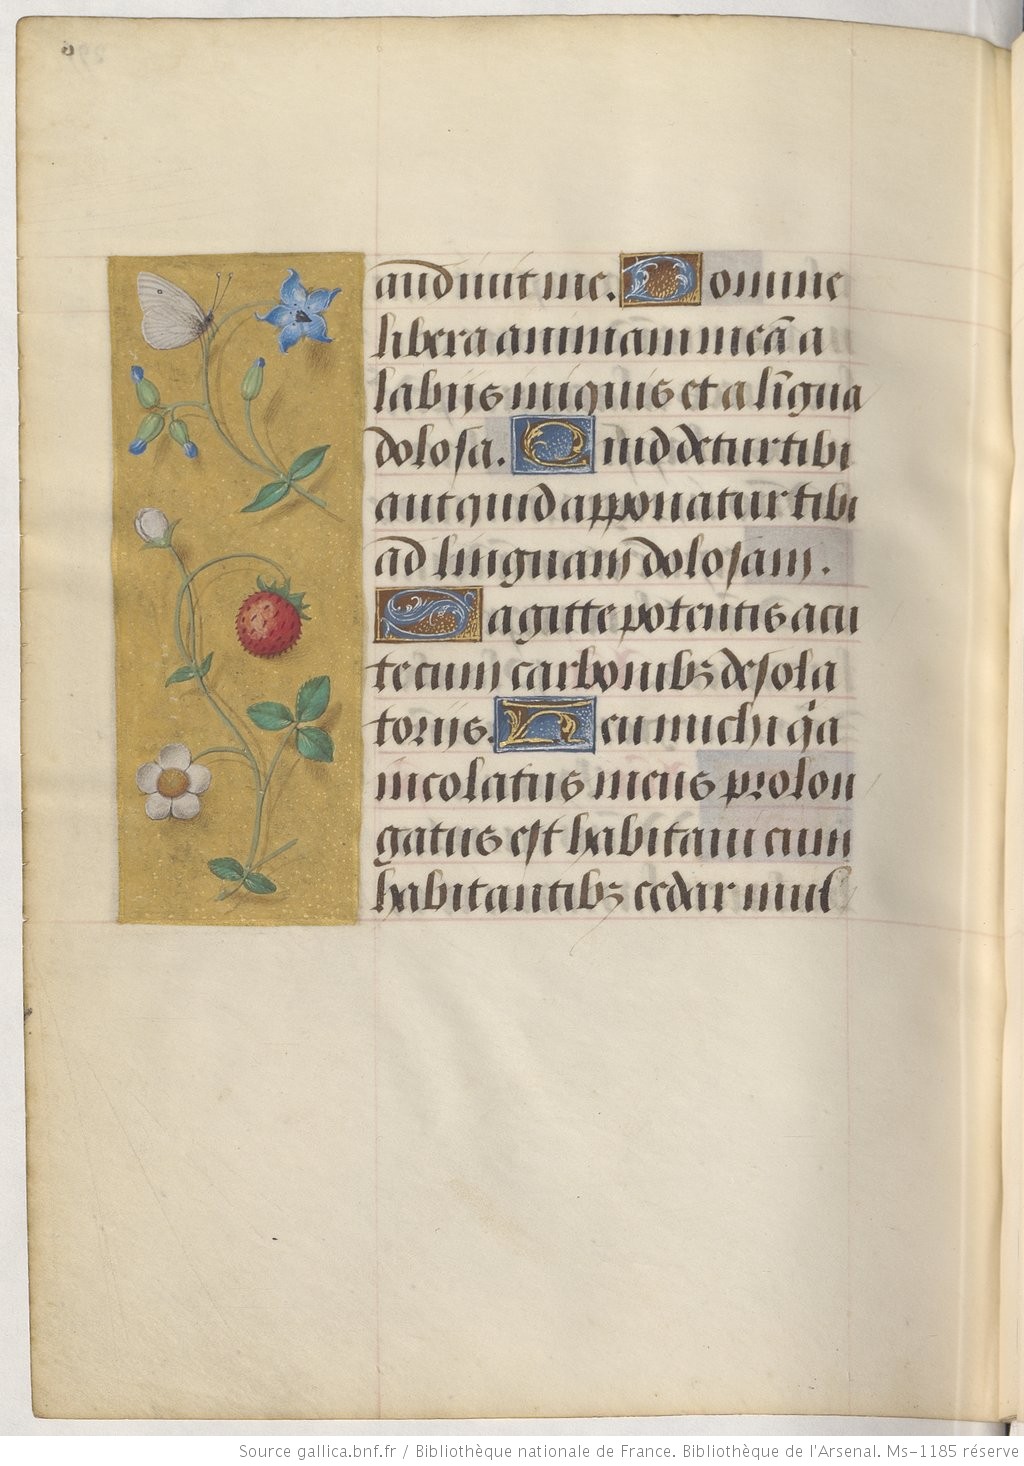 audiuit me. Domine
libera animam meā a
labijs iniquis et a līgua
dolosa. Quid detur tibi
aut quid apponatur tibi
ad linguam dolosam.
Sagitte potentis acu
te cum carbonibꝫ desola
torijs. Heu michi q̇a
incolatus meus prolon
gatus est habitaui cum
habitantibꝫ cedar mul
Source gallica.bnf.fr / Bibliothèque nationale de France. Bibliothèque de l'Arsenal. Ms-1185 réserve